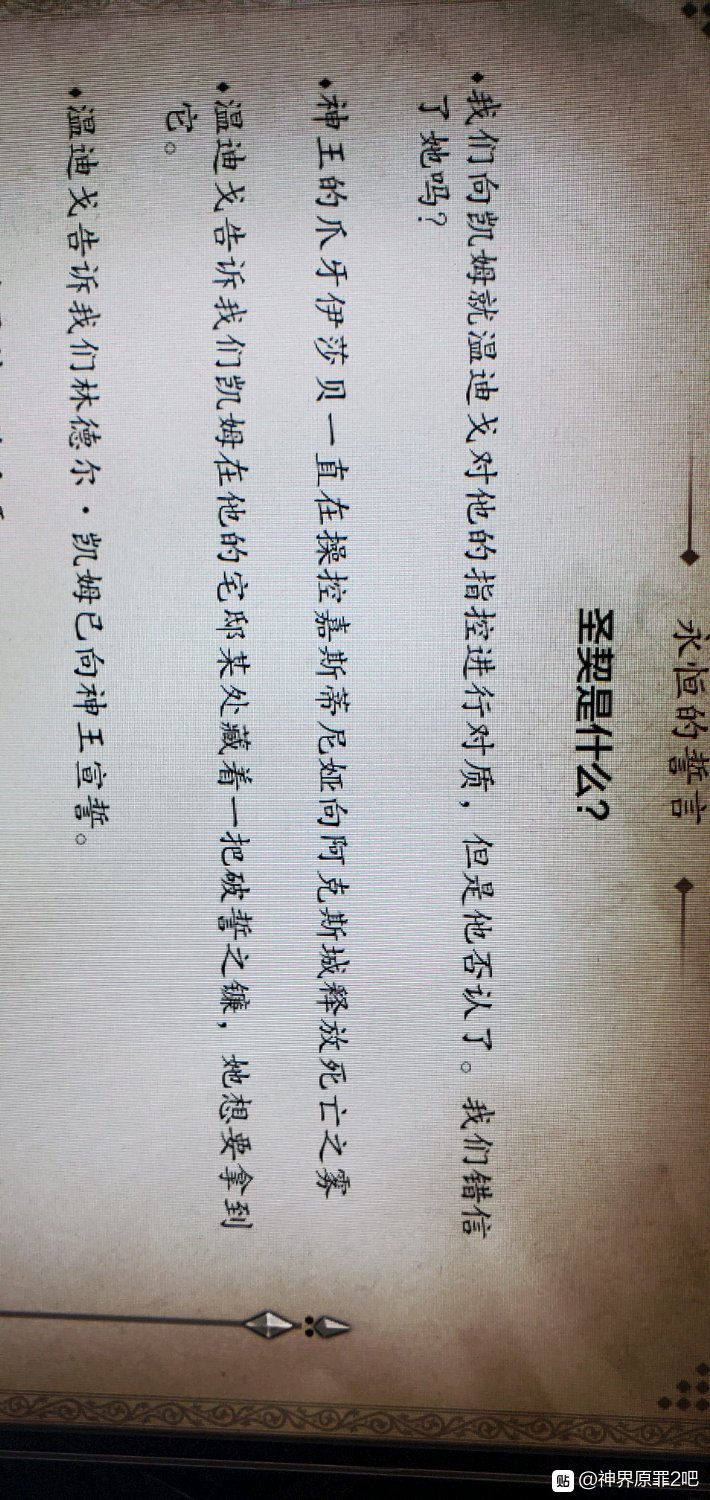 永恒的誓言
圣契是什么?
我们向凯姆就温迪戈对他的指控进行对质，但是他否认了。我们错信
了她吗?
神王的爪牙伊莎贝一直在操控嘉斯蒂尼娅向阿克斯城释放死亡之雾
温迪戈告诉我们凯姆在他的宅邸某处藏着一把破誓之镰，她想要拿到
它。
温迪戈告诉我们林德尔·凯姆已向神王宣誓。
贴 @神界原罪2吧